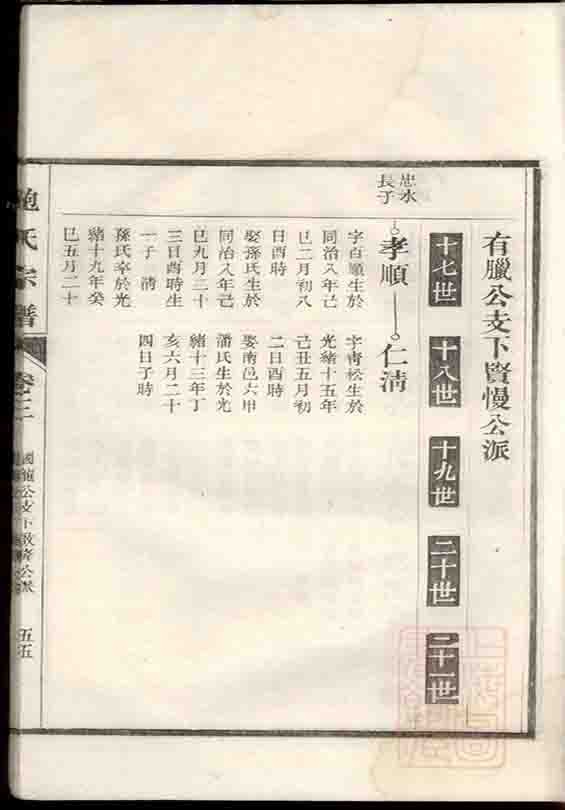 有臘公支下賢慢公派
十七世
十八世
十九世
二十世
二十一世
忠水
長子
孝順
仁清
字百順生於
同治八年己
巳二月初八
日酉時
娶孫氏生於
同治八年己
巳九月二十
三日酉時生
一子 清
孫氏卒於光
緒十九年癸
巳五月二十
字青松生於
光緒十五年
己丑五月初
二日酉時
娶南邑六甲
潘氏生於光
緒十三年丁
亥六月二十
四日子時
鮑氏宗譜
卷三
五五